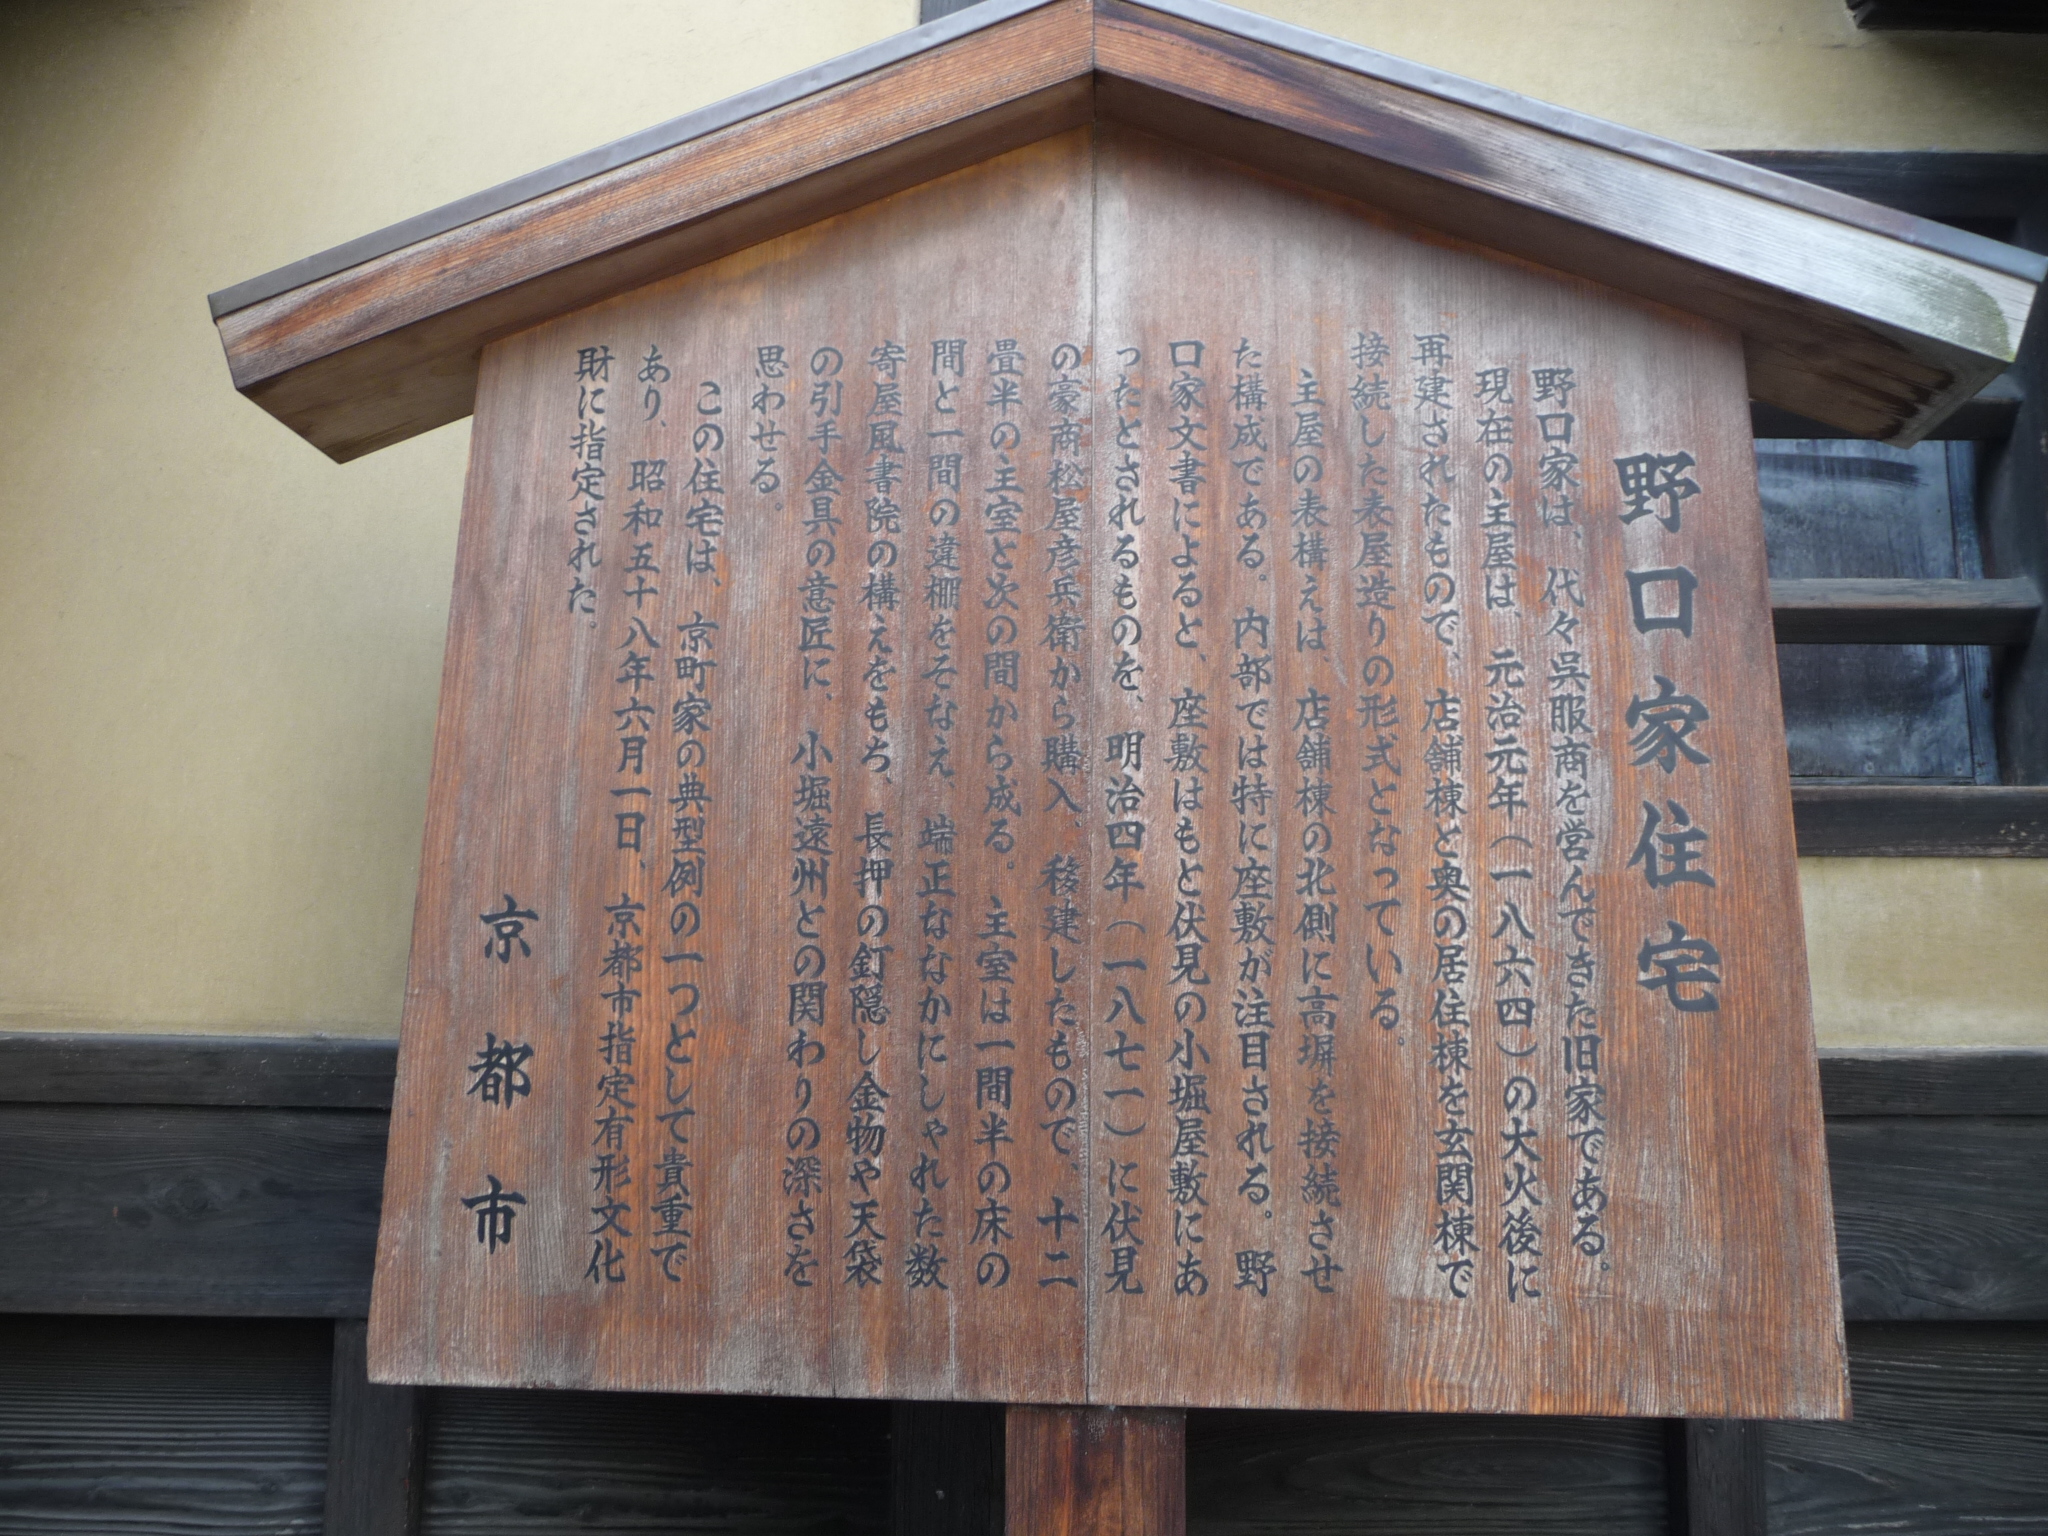 野口家住宅
野口家は、代々呉服商を営んできた旧家である。
現在の主屋は、元治元年（一八六四）の大火後に
再建されたもので、店舗棟と奥の居住棟を玄関棟で
接続した表屋造りの形式となっている。
主屋の表構えは、店舗棟の北側に高塀を接続させ
た構成である。内部では特に座敷が注目される。野
口家文書によると、座敷はもと伏見の小堀屋敷にあ
ったとされるものを、明治四年（一八七一）に伏見
の豪商松屋彦兵衛から購入、移建したもので、十二
畳半の主室と次の間から成る。主室は一間半の床の
間と一間の違棚をそなえ、端正ななかにしゃれた数
寄屋風書院の構えをもち、長押の釘隠し金物や天袋
の引手金具の意匠に、小堀遠州との関わりの深さを
思わせる。
この住宅は、京町家の典型例の一つとして貴重で
あり、昭和五十八年六月一日、京都市指定有形文化
財に指定された。
京都市